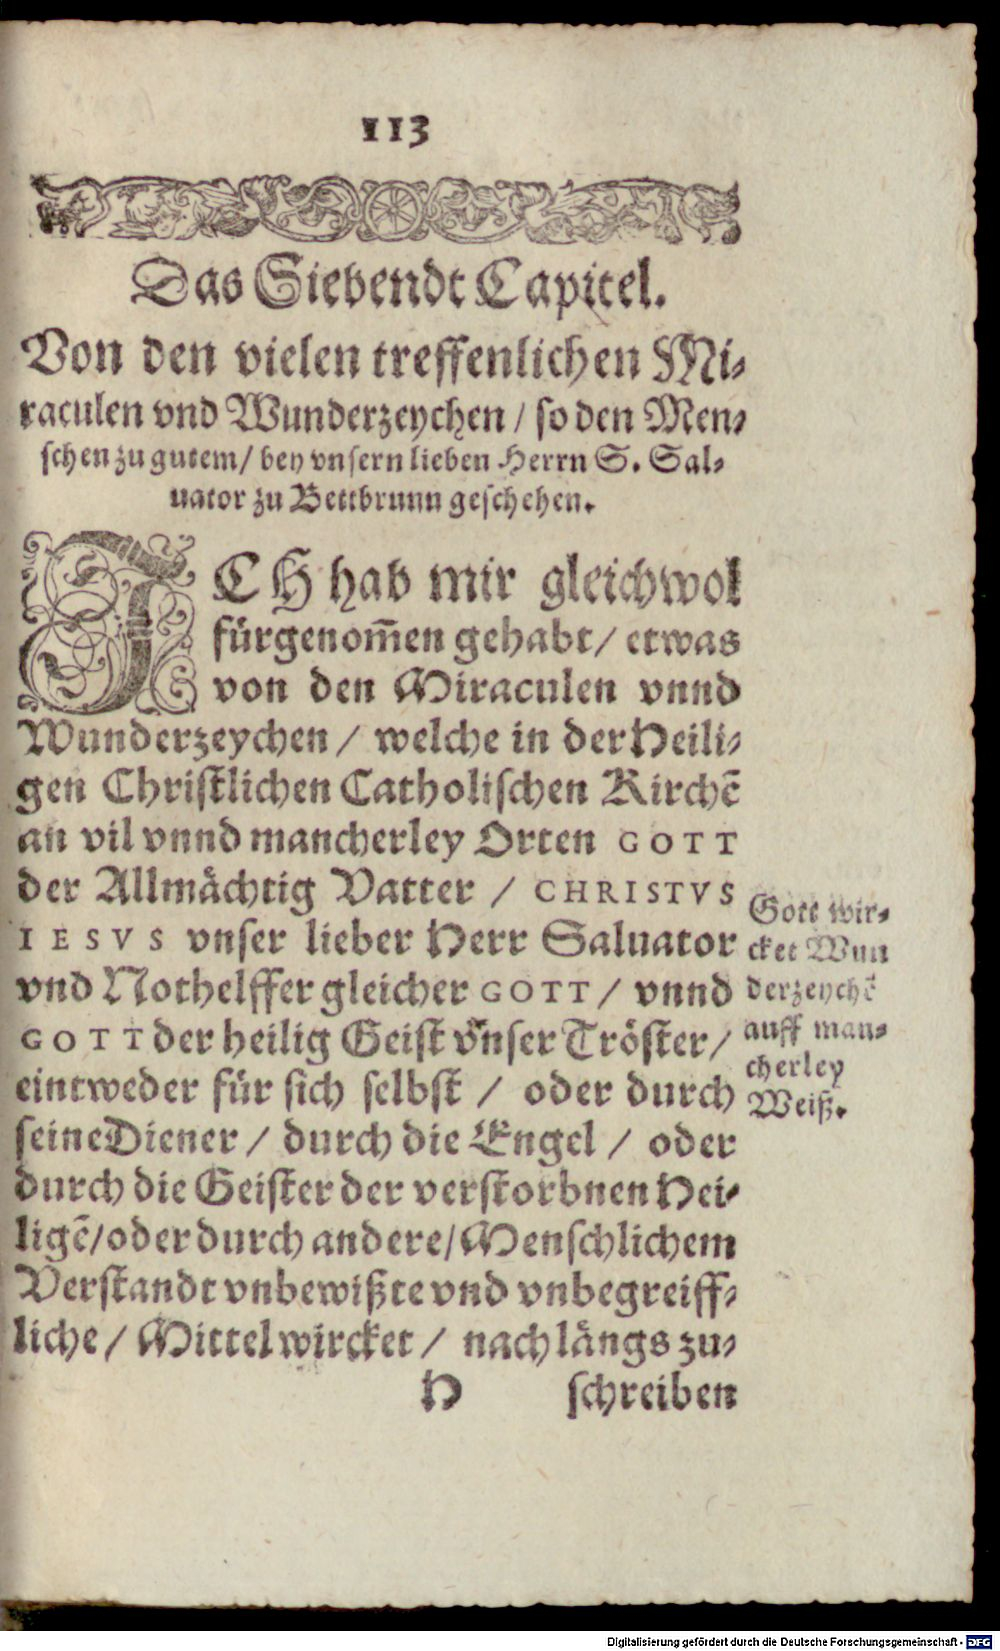 113
Das Siebendt Capitel.
Von den vielen treffenlichen Mi-
raculen vnd Wunderzeychen / so den Men-
schen zu gutem / bey vnsern lieben Herrn S. Sal-
uator zu Bettbrunn geschehen.
ICH hab mir gleichwol
fürgenom̃en gehabt / etwas
von den Miraculen vnnd
Wunderzeychen / welche in der Heili-
gen Christlichen Catholischen Kirchẽ
an vil vnnd mancherley Orten GOTT
der Allmächtig Vatter / CHRISTVS
IESVS vnser lieber Herr Saluator
vnd Nothelffer gleicher GOTT / vnnd
GOTT der heilig Geist vnser Tröster /
eintweder für sich selbst / oder durch
seine Diener / durch die Engel / oder
durch die Geister der verstorbnen Hei-
ligẽ / oder durch andere / Menschlichem
Verstandt vnbewißte vnd vnbegreiff-
liche / Mittel wircket / nach längs zu-
H schreiben
Gott wir-
cket Wun
derzeychẽ
auff man-
cherley
Weiß.
Digitalisierung gefördert durch die Deutsche Forschungsgemeinschaft - DFG